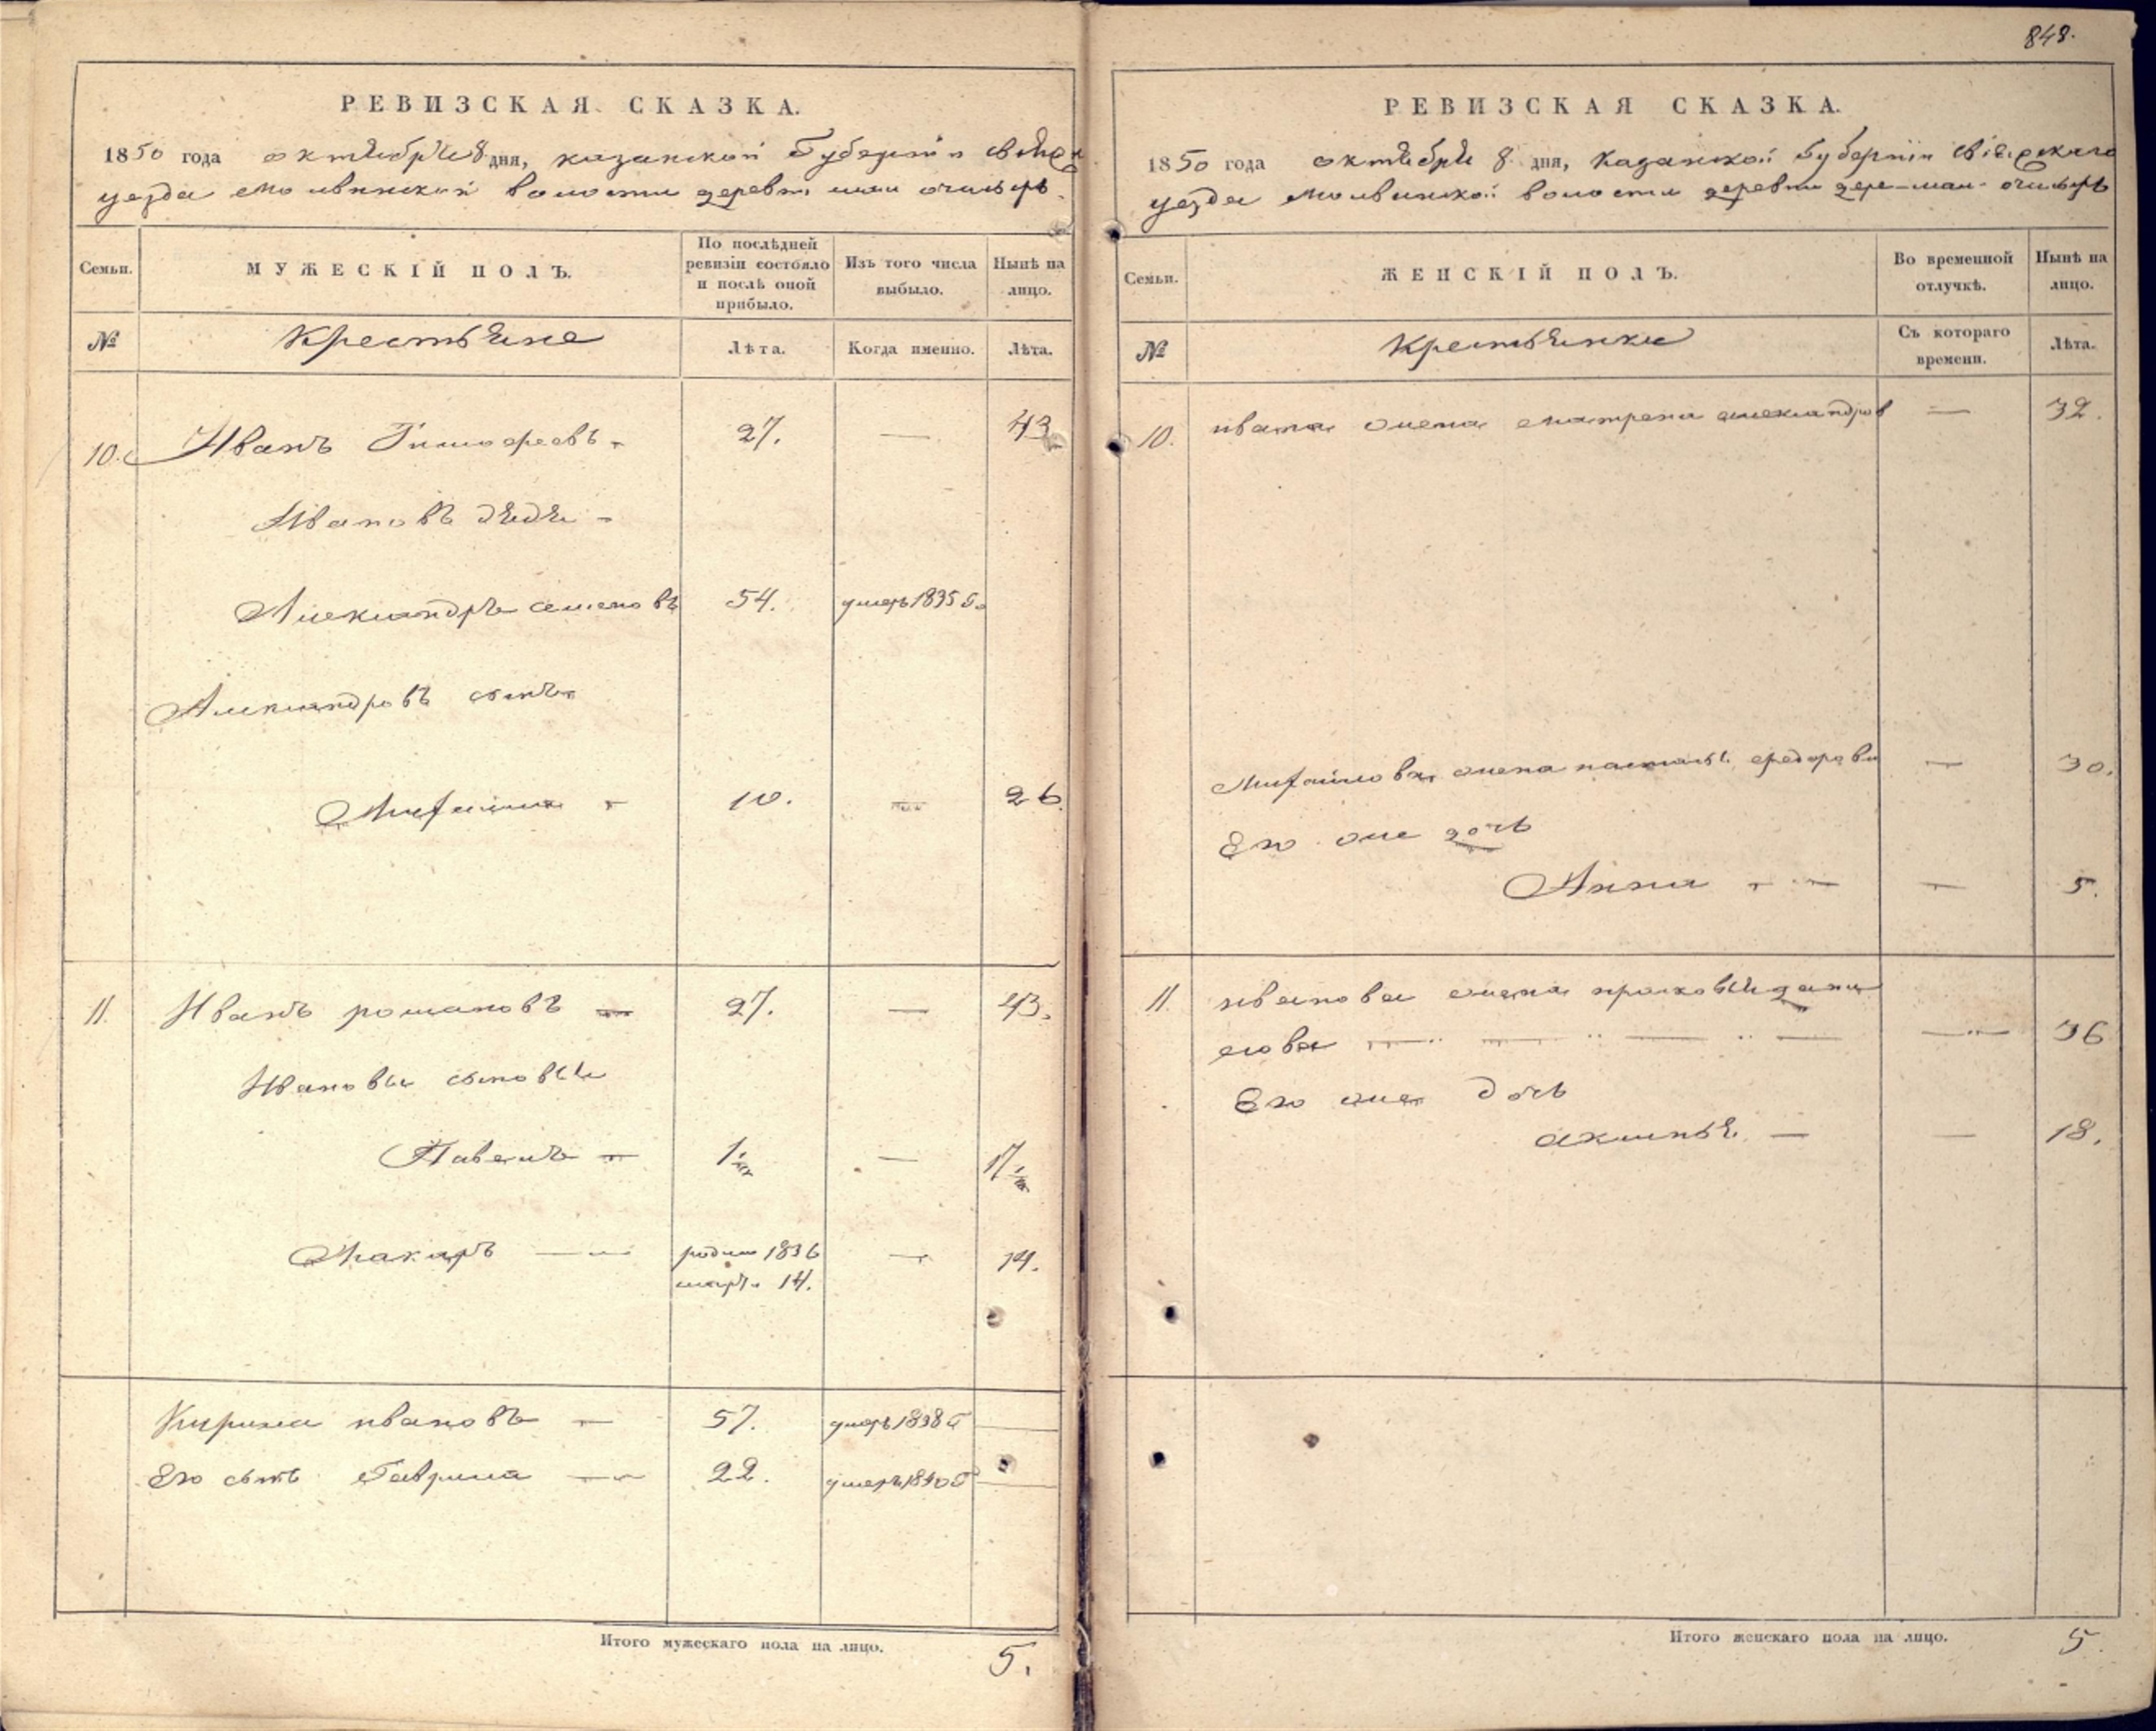 РЕВИЗСКАЯ СКАЗКА.
1850 года октября 8 дня, казанской Губернии свіяж
уезда молвинской волости деревни
Семьи.
МУЖЕСКІЙ ПОЛЪ.
По послѣдней ревизіи состояло и послѣ оной прибыло.
Изъ того числа выбыло.
Нынѣ на лицо.
№
Крестьяне
Лѣта.
Когда именно.
Лѣта.
10. Иванъ Тимофеевъ 27. — 43
Ивановъ дядя
Александръ семеновъ 54. умеръ 1835 г.
Александровъ сынъ
Михаила 10. — 26.
11. Иванъ романовъ 27. — 43.
Ивановы сыновья
Павелъ 1 — 17
Макаръ родил 1836 — 14.
март. 14.
Кирила ивановъ 57. умеръ 1838 г
Его сынъ Гаврила 22. умеръ 1840 г
Итого мужескаго пола на лицо.
5.
848.
РЕВИЗСКАЯ СКАЗКА.
1850 года октября 8 дня, Казанской Губерніи свіяжскаго
уезда молвинской волости деревни
Семьи.
ЖЕНСКІЙ ПОЛЪ.
Во временной отлучкѣ.
Нынѣ на лицо.
№
Крестьянки
Съ котораго времени.
Лѣта.
10. ивана жена матрена александров — 32.
Михайлова жена наталья федорова — 30.
Его же дочь
Анна — 5.
11. иванова жена прасковья дани
лова — 36
Его же дочь
акинья — 18.
Итого женскаго пола на лицо.
5.